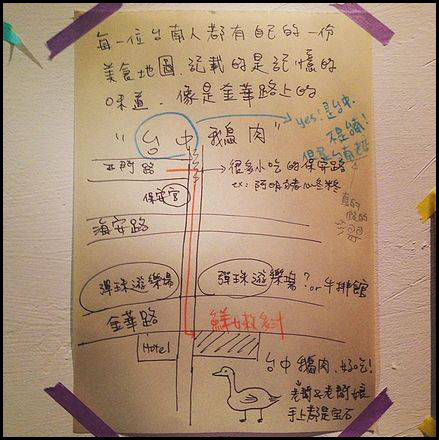 每一位台南人都有自己的一份
美食地圖 記載的是記憶的
味道. 像是金華路上的
"台中鵝肉"
yes! 是台中.
不是台南!
西門路
很多小吃的保安路
ex: 阿明豬心冬粉
保安宮
真的
假的
海安路
彈珠遊樂場
彈珠遊樂場? or 牛排館
金華路
Hotel
台中鵝肉. 好吃!
老闆&老闆娘
手上都是寶石